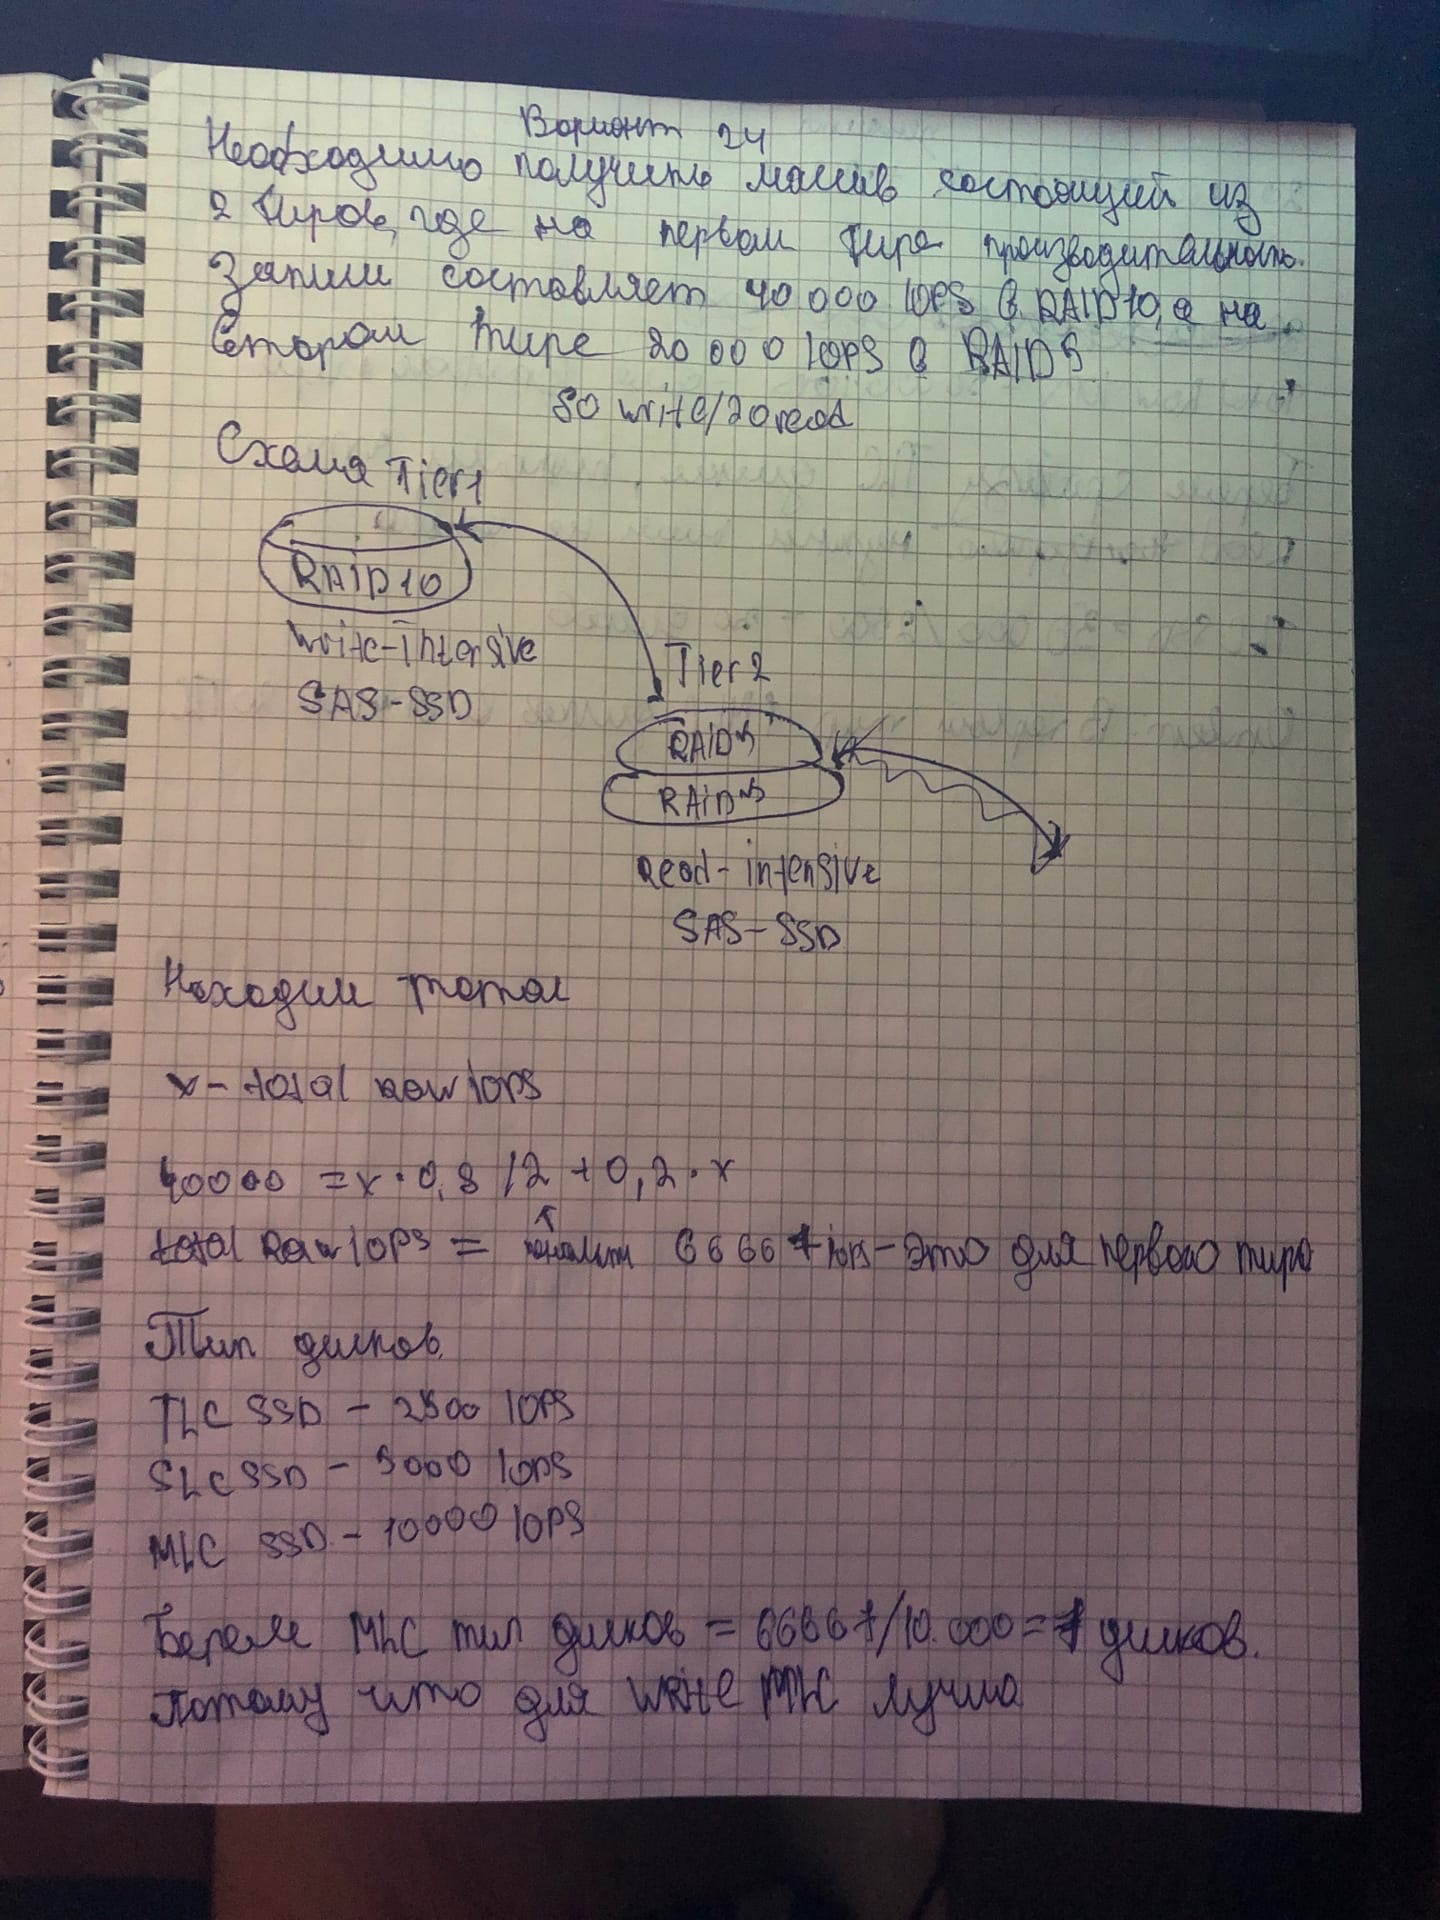 Вариант 24
Необходимо получить массив состоящий из
2 тиров, где на первом тире производительность
записи составляет 40 000 IOPS в RAID10, а на
втором тире 20 000 IOPS в RAID 5
80 write/20 read
Схема Tier1
RAID 10
write-intensive
SAS-SSD
Tier 2
RAID 5
RAID 5
Read-intensive
SAS-SSD
Находим тотал
x - total raw IOPS
40000 = x · 0,8 /2 + 0,2 · x
total Raw IOPS = пенальти 66667 iops - это для первого тира
Тип дисков
TLC SSD - 2500 IOPS
SLC SSD - 5000 IOPS
MLC SSD - 10000 IOPS
Берем MLC тип дисков = 66667/10.000 = 7 дисков.
Потому что для write MLC лучше